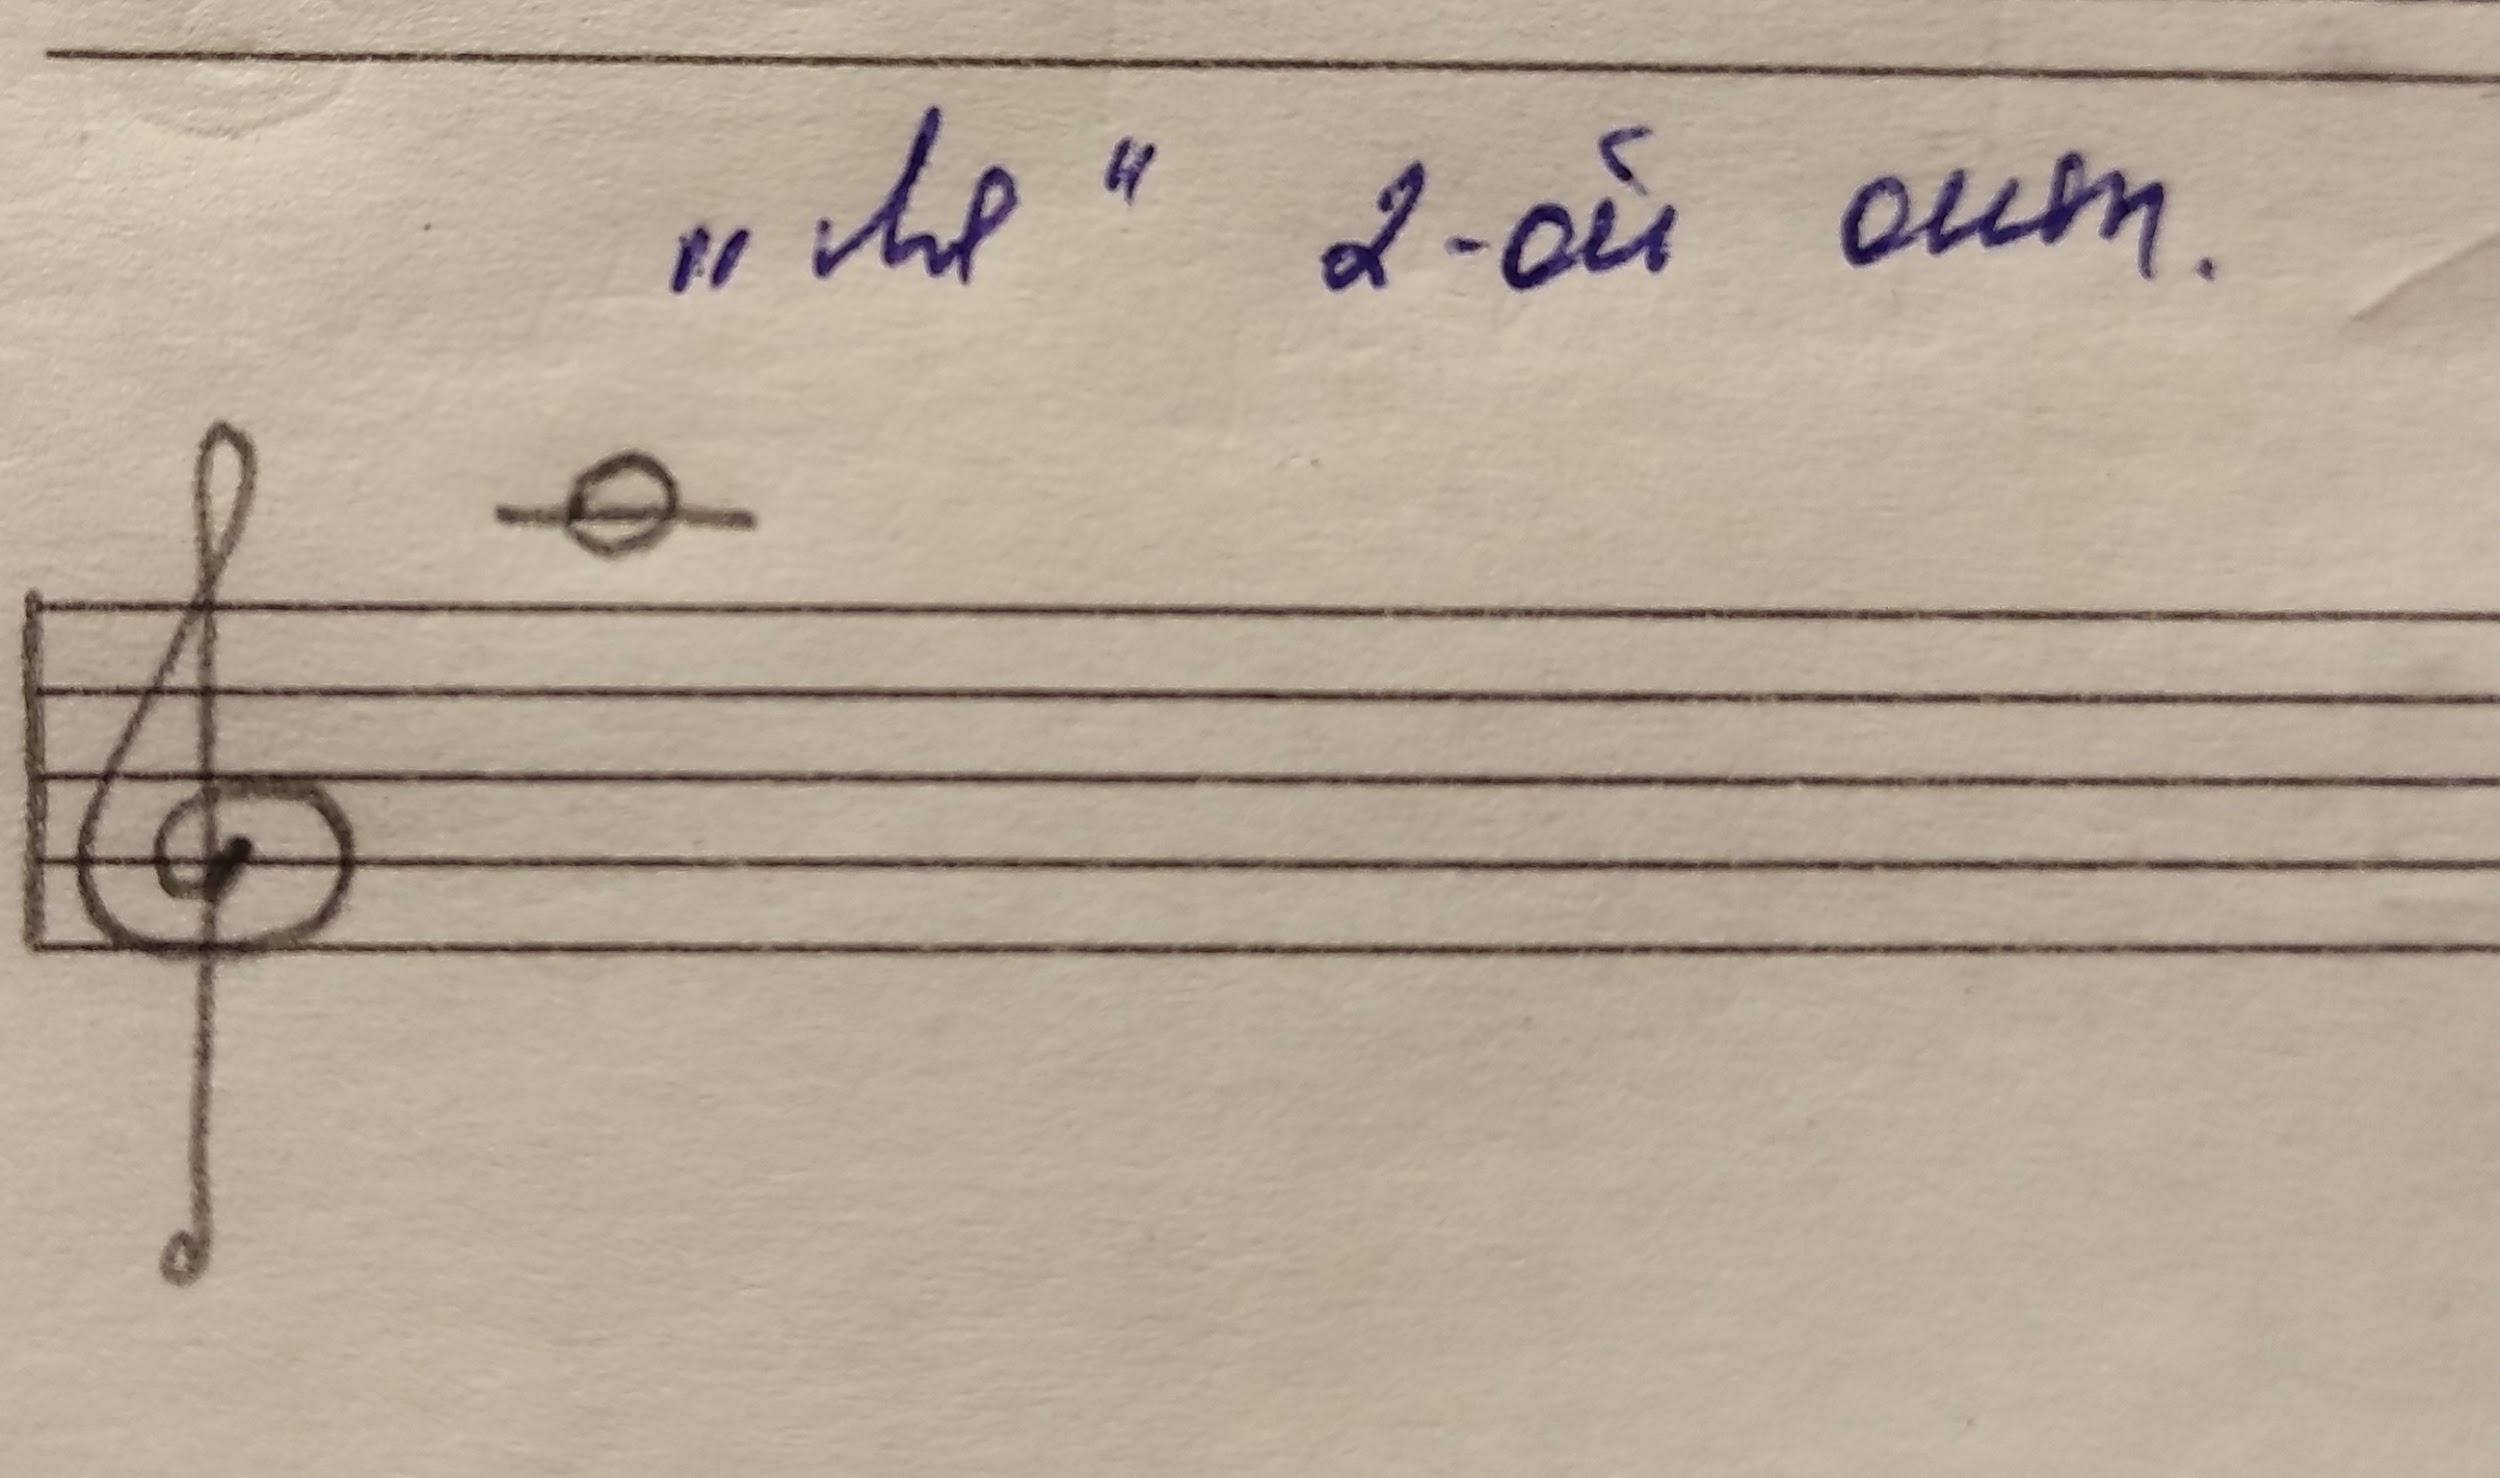 „ля“ 2-ой окт.